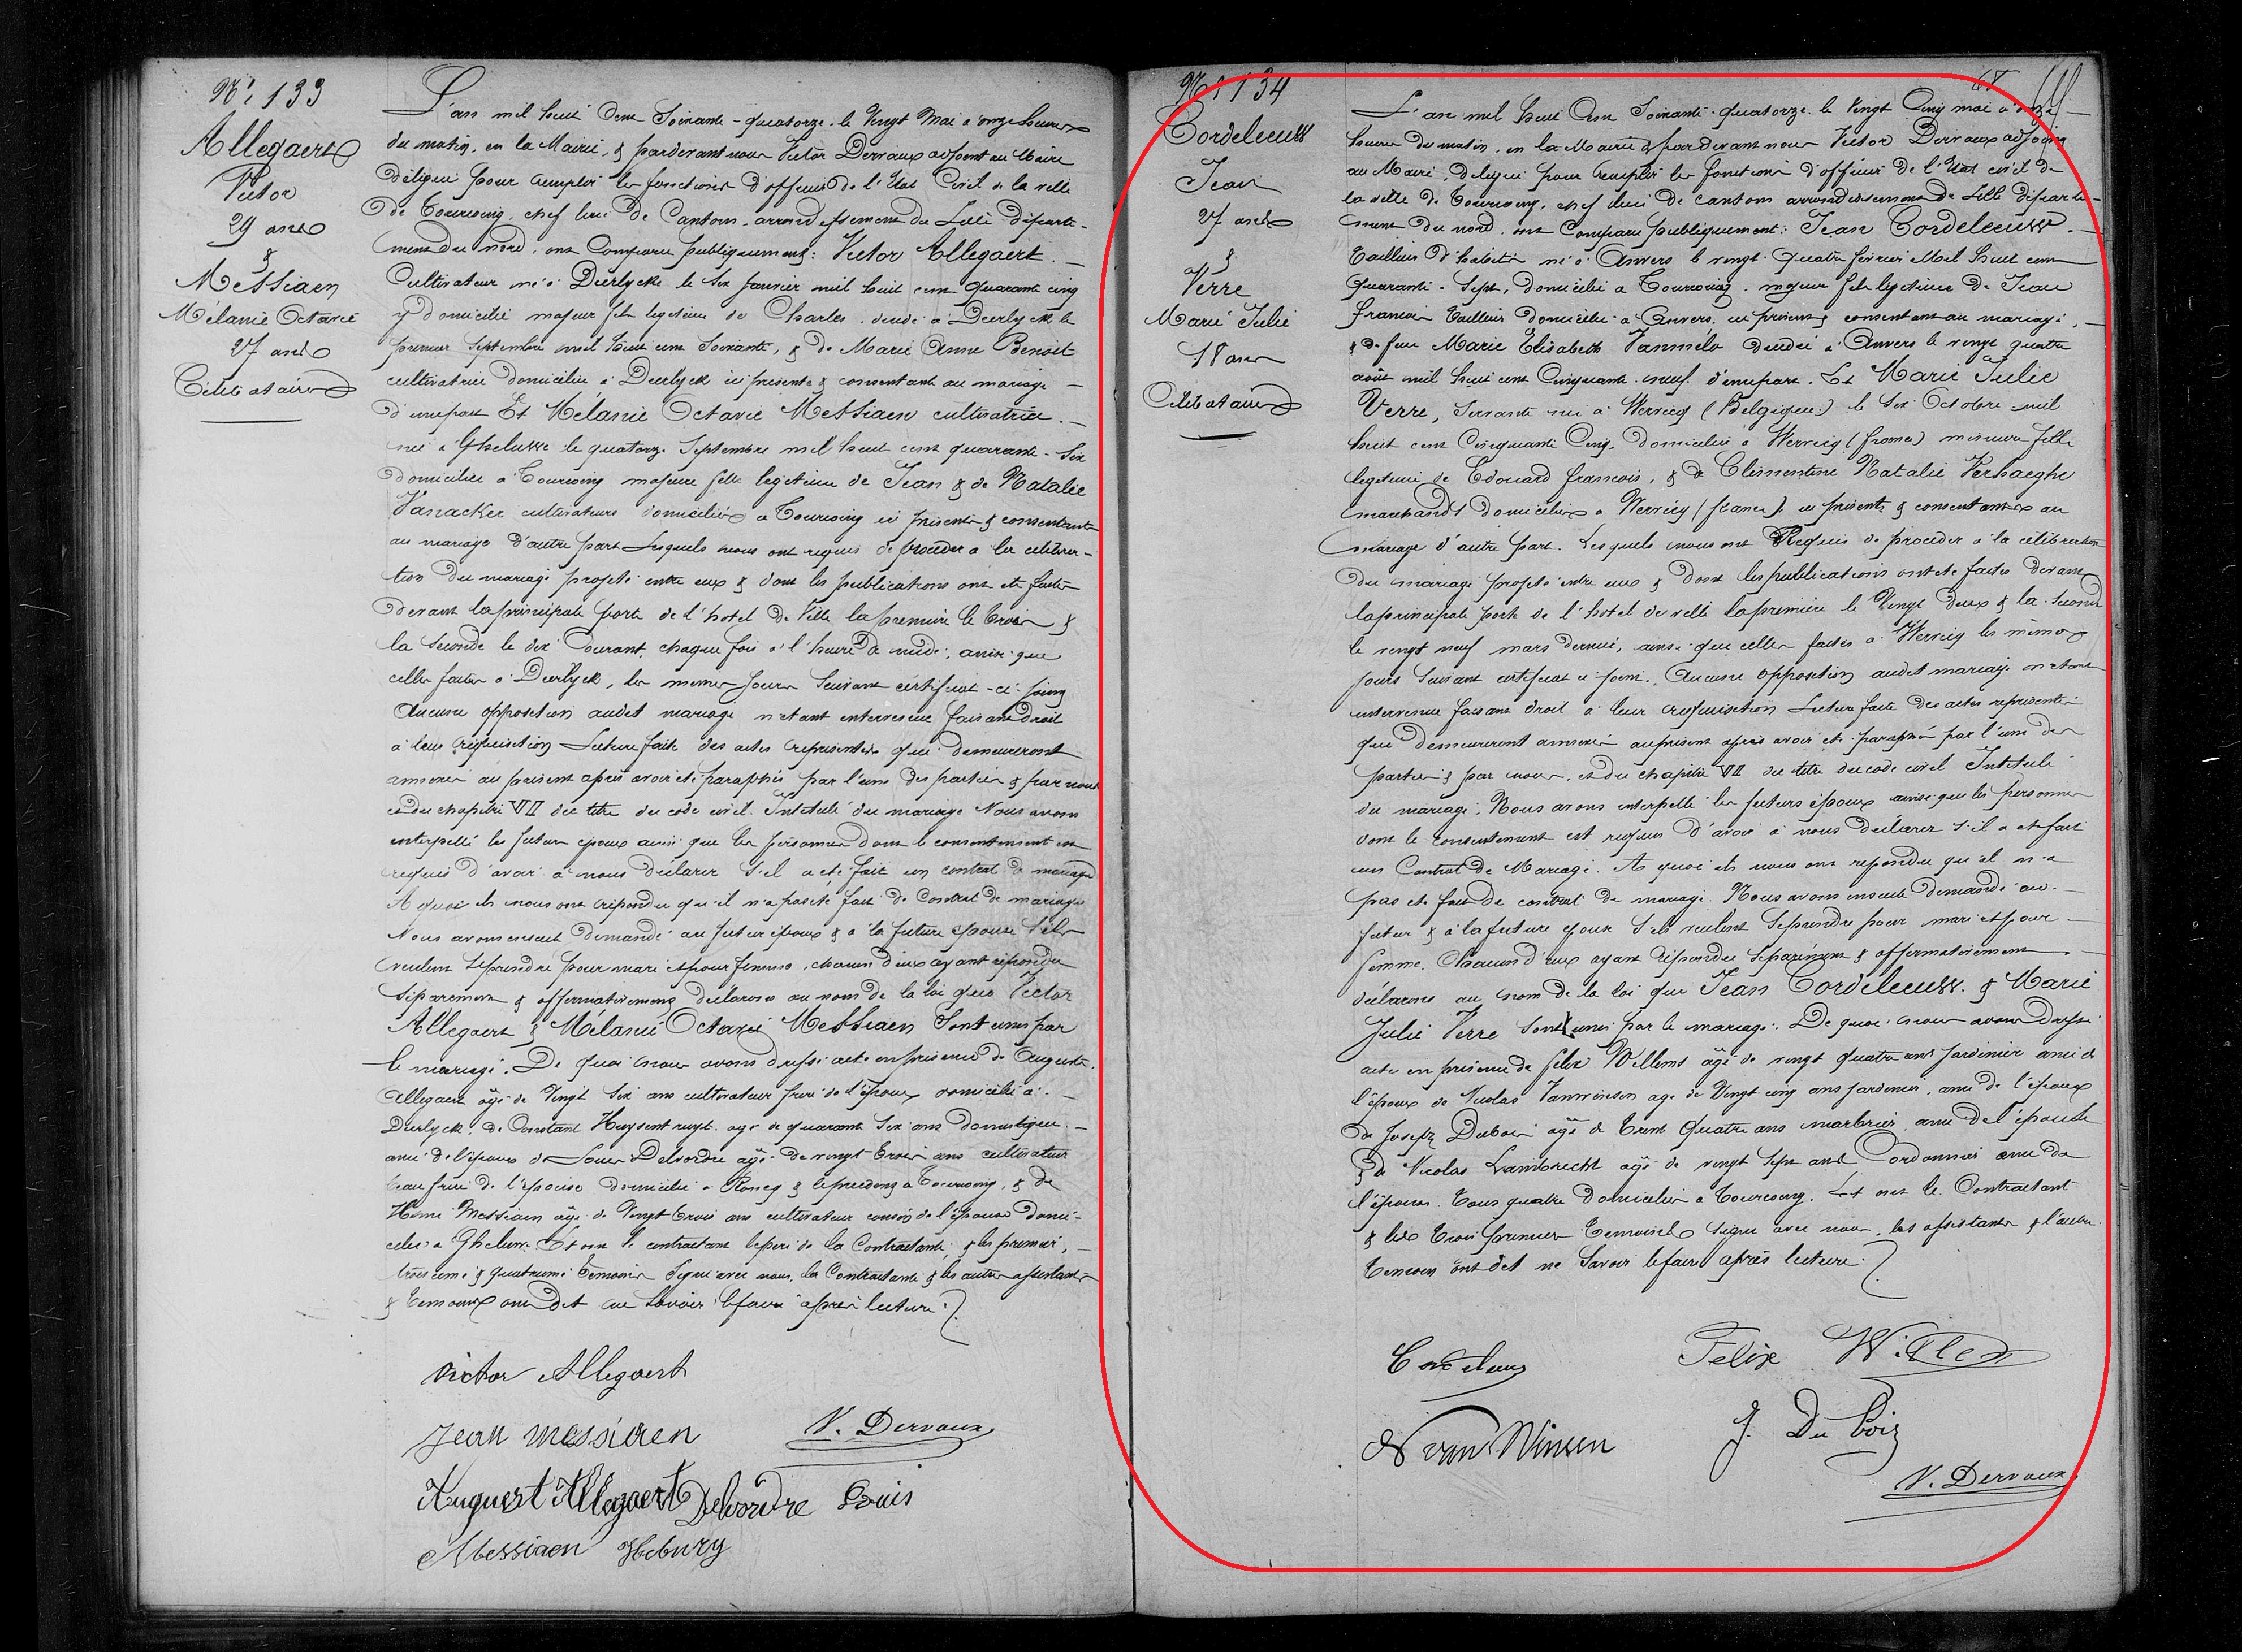 N° 133
Allegaert
Victor
29 ans
&
Messiaen
Mélanie Octavie
27 ans
Célibataires
L'an mil huit Cent Soixante-quatorze le Vingt Mai à onze heures
du matin, en la Mairie, & pardevant nous Victor Dervaux adjoint au Maire
délégué pour remplir les fonctions d'officier de l'Etat Civil de la ville
de Tourcoing, chef lieu de Canton, arrondissement de Lille départe-
ment du nord, ont Comparu publiquement: Victor Allegaert.
Cultivateur né à Deerlyck le Six Janvier mil huit cent quarante cinq
y domicilié majeur fils légitime de Charles, décédé à Deerlyck le
premier Septembre mil huit cent Soixante, & de Marie Anne Benoit
cultivatrice domiciliée à Deerlyck ici présente & consentante au mariage
d'une part Et Mélanie Octavie Messiaen cultivatrice.
née à Gheluwe le quatorze Septembre mil huit cent quarante-Six
domiciliée à Tourcoing majeure fille légitime de Jean & de Natalie
Vanacker cultivateurs domiciliés à Tourcoing ici présents & consentant
au mariage d'autre part Lesquels nous ont requis de procéder à la célébra-
tion du mariage projeté entre eux & dont les publications ont été faites
devant la principale porte de l'hotel de Ville la première le trois &
la Seconde le dix Courant, chaque fois à l'heure de midi, ainsi que
celles faites à Deerlyck, les mêmes jours Suivant certificat-ci-joint
Aucune opposition audit mariage n'étant intervenue faisant droit
à leur réquisition Lecture faite des actes représentés qui demeureront
annexés au présent après avoir été paraphés par l'une des parties & par nous
et du chapitre VII du titre du code civil Intitulé du mariage Nous avons
interpellé les futurs époux ainsi que les personnes dont le consentement est
requis d'avoir à nous déclarer s'il a été fait un contrat de mariage
A quoi ils nous ont répondu qu'il n'a pas été fait de Contrat de mariage
Nous avons ensuite demandé au futur époux & à la future épouse S'ils
veulent Se prendre pour mari et pour femme, chacun d'eux ayant répondu
Séparément & affirmativement déclarons au nom de la loi que Victor
Allegaert & Mélanie Octavie Messiaen Sont unis par
le mariage. De quoi nous avons dressé acte en présence de Auguste
Allegaert âgé de Vingt Six ans cultivateur frère de l'époux domicilié à
Deerlyck, de Constant Huysentruyt âgé de quarante Six ans domestique
ami de l'époux de Louis Delvordre âgé de vingt trois ans cultivateur
beau frère de l'épouse domicilié à Roncq & le précédent à Tourcoing, & de
Henri Messiaen âgé de Vingt trois ans cultivateur cousin de l'épouse domi-
cilié à Gheluwe Et ont le contractant le père de la Contractante & les premier,
troisième & quatrième témoins Signé avec nous, la Contractante & les autres assistants
& témoins ont dit ne Savoir le faire après lecture
Victor Allegaert
Jean Messiaen
V. Dervaux
August Allegaert Delvordre Louis
Messiaen
N° 134
Cordeleeuw
Jean
27 ans
&
Verre
Marie Julie
18 ans
Célibataires
L'an mil huit Cent Soixante-quatorze le Vingt Cinq mai à onze
heures du matin, en la Mairie & pardevant nous Victor Dervaux adjoint
au Maire, délégué pour remplir les fonctions d'officier de l'Etat civil de
la ville de Tourcoing, chef lieu de canton arrondissement de Lille départe-
ment du nord, ont Comparu publiquement: Jean Cordeleeuw.
tailleur d'habits né à Anvers le vingt-quatre février Mil huit cent
Quarante-Sept, domicilié à Tourcoing, majeur fils légitime de Jean
François tailleur domicilié à Anvers, ici présent & consentant au mariage,
& de feue Marie Elisabeth Vanmelo décédée à Anvers le vingt quatre
août mil huit cent Cinquante-neuf, d'une part. Et Marie Julie
Verre, Servante née à Wervicq (Belgique) le Six Octobre mil
huit cent Cinquante Cinq, domiciliée à Wervicq (france) mineure fille
légitime de Edouard François, & de Clémentine Natalie Verhaeghe
marchands domiciliés à Wervicq (france), ici présents & consentants au
mariage d'autre part. Lesquels nous ont Requis de procéder à la célébration
du mariage projeté entre eux & dont les publications ont été faites devant
la principale porte de l'hotel de ville la première le Vingt deux & la Seconde
le vingt neuf mars dernier, ainsi que celles faites à Wervicq les mêmes
jours Suivant certificat ci joint. Aucune opposition audit mariage n'étant
intervenue faisant droit à leur réquisition Lecture faite des actes représentés
qui demeureront annexés au présent après avoir été paraphés par l'une des
parties & par nous, et du chapitre VII du titre du code civil Intitulé
du mariage. Nous avons interpellé les futurs époux ainsi que les personnes
dont le consentement est requis d'avoir à nous déclarer s'il a été fait
un Contrat de Mariage. A quoi ils nous ont répondu qu'il n'a
pas été fait de contrat de mariage. Nous avons ensuite demandé au
futur & à la future époux S'ils veulent Se prendre pour mari et pour
femme, Chacun d'eux ayant répondu Séparément & affirmativement
déclarons au nom de la loi que Jean Cordeleeuw. & Marie
Julie Verre Sont unis par le mariage. De quoi nous avons dressé
acte en présence de félix Willems âgé de vingt quatre ans jardinier ami de
l'époux de Nicolas Vanwinsen agé de Vingt cinq ans jardinier, ami de l'époux
de Joseph Dubois âgé de trente Quatre ans marbrier, ami de l'épouse
& de Nicolas Lambrecht âgé de vingt Sept ans Cordonnier ami de
l'épouse. tous quatre domiciliés à Tourcoing. Et ont le Contractant
& les trois premiers témoins Signé avec nous, les assistants & l'autre
témoin ont dit ne Savoir le faire après lecture.
Felix Willems
N van Winsen
J. Du bois
V. Dervaux